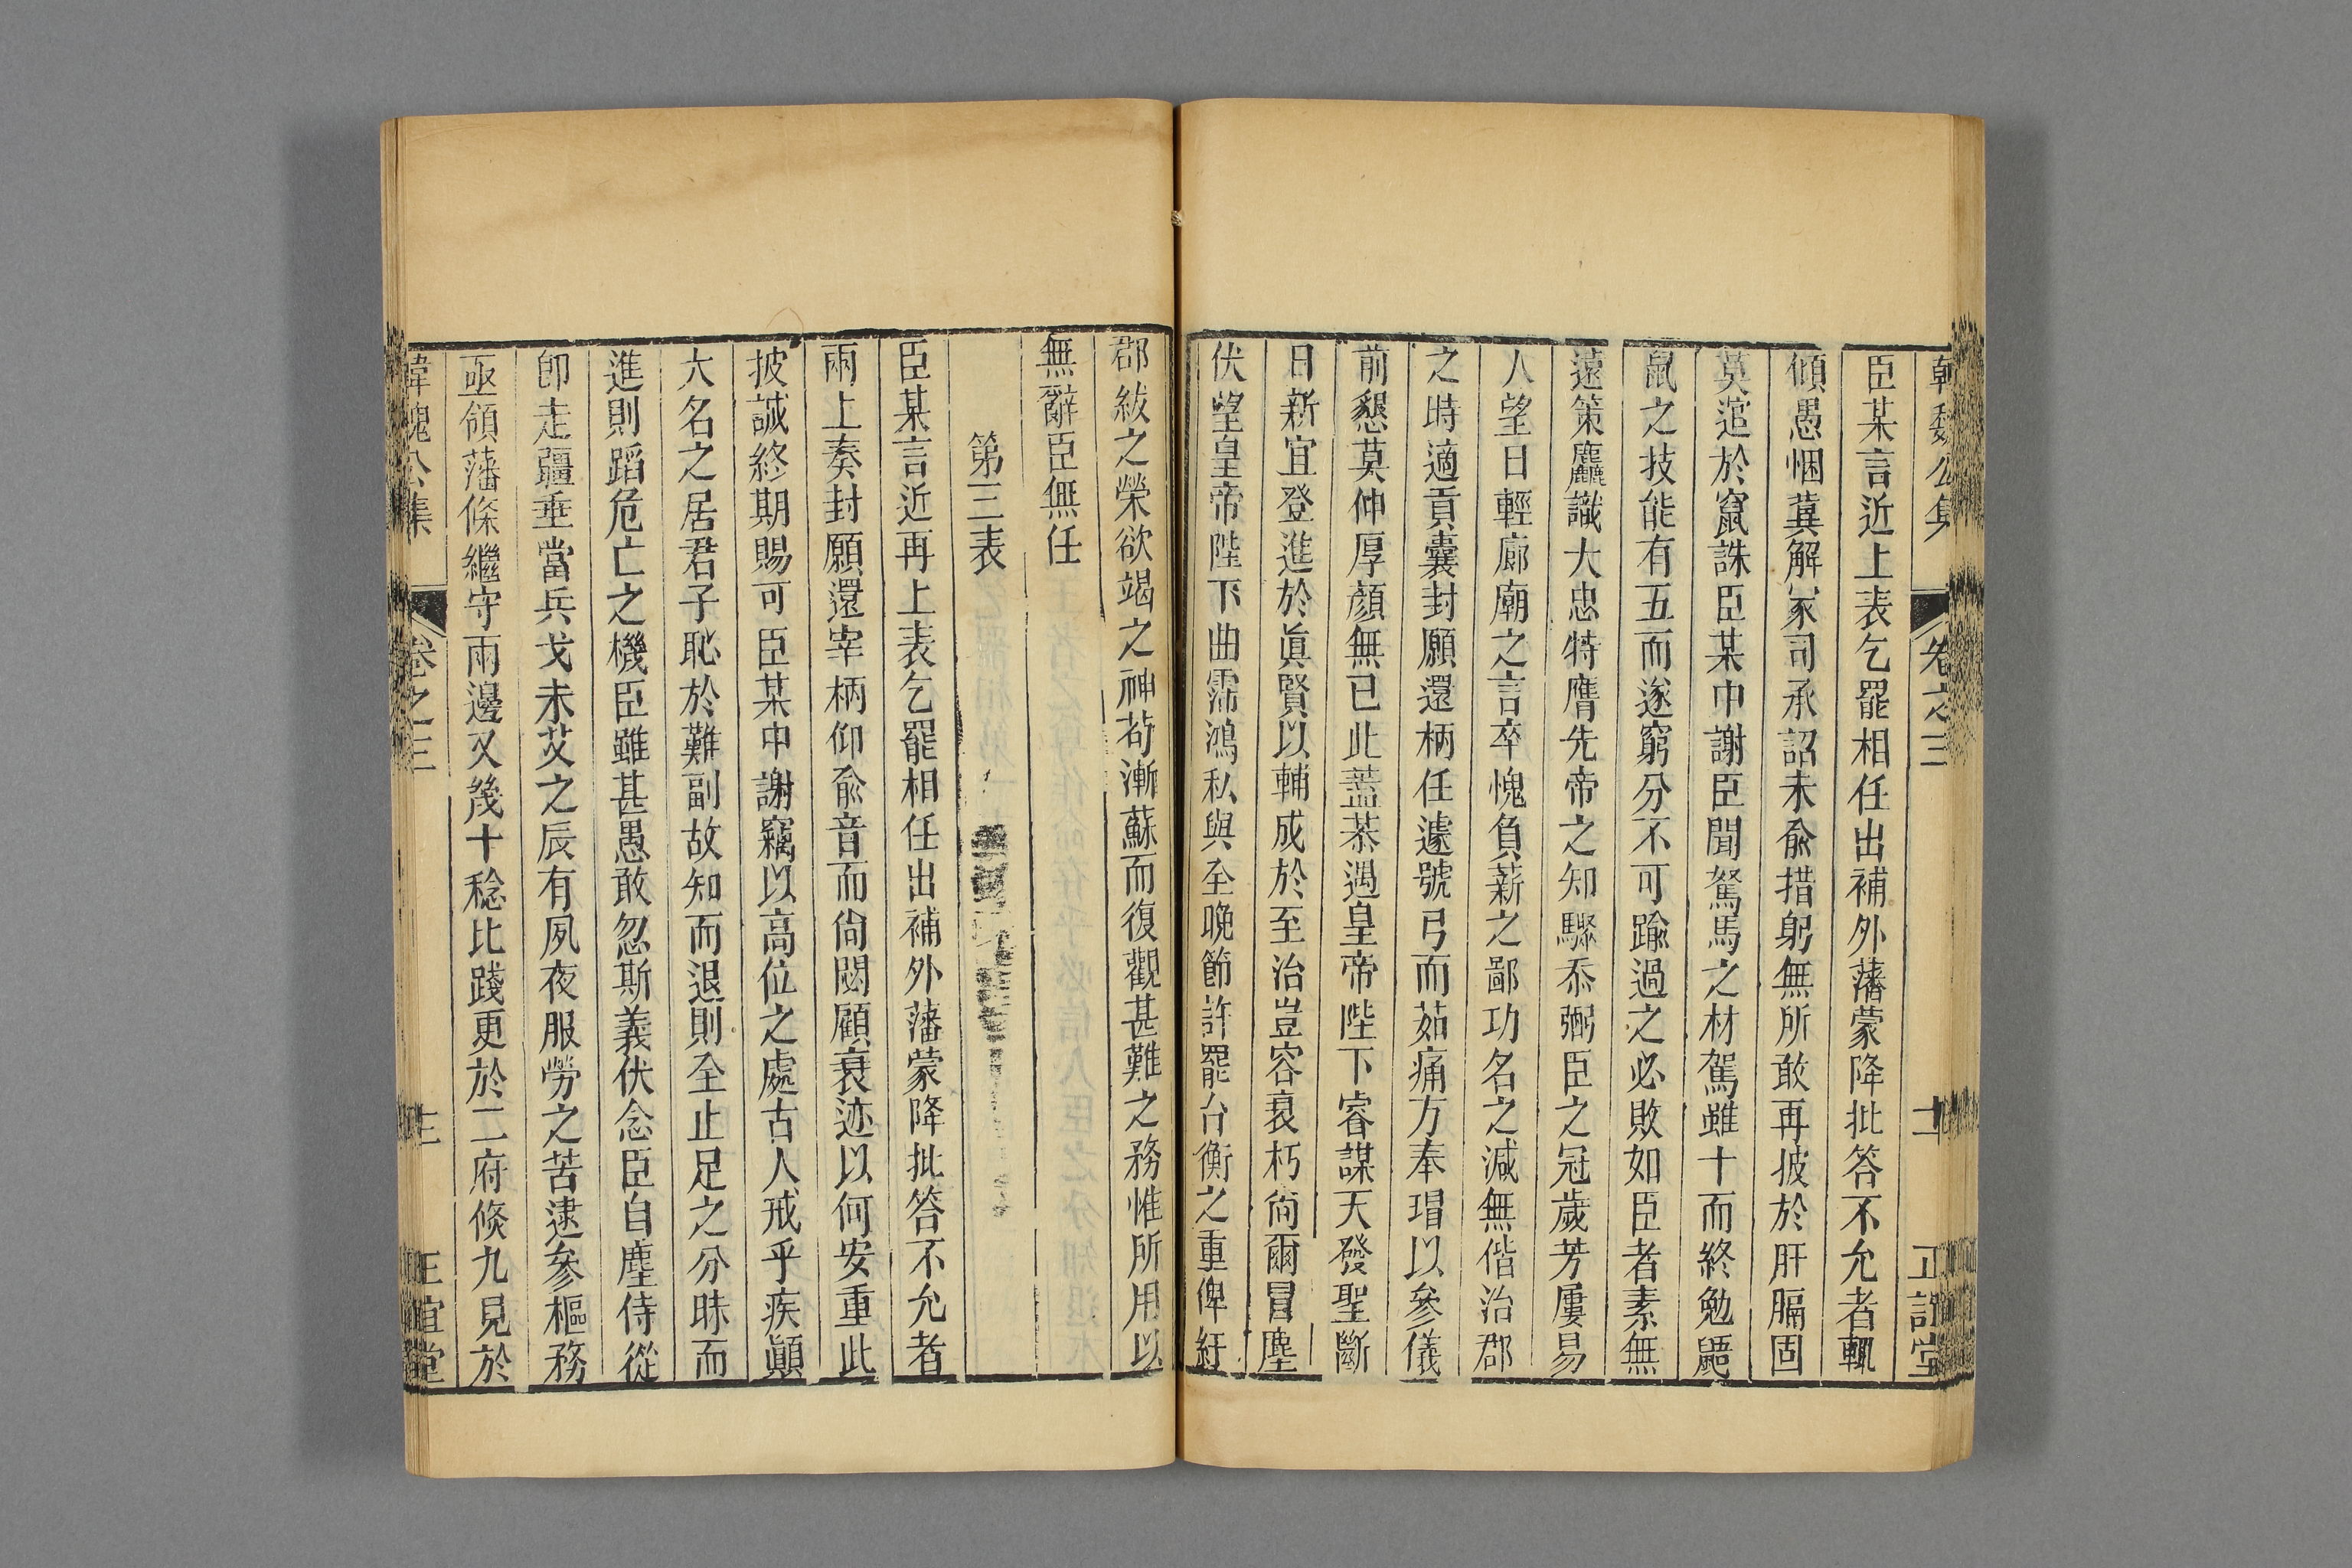 韓魏公集 卷之三 十二 正誼堂
臣某言近上表乞罷相任出補外藩蒙降批答不允者輒
傾愚悃冀解冢司承詔未兪措躬無所敢再披於肝膈固
莫逭於竄誅臣某中謝臣聞駑馬之材駕雖十而終勉鼯
鼠之技能有五而遂窮分不可踰過之必敗如臣者素無
遠策麤識大忠特膺先帝之知驟忝弼臣之冠歲芳屢易
人望日輕廊廟之言卒愧負薪之鄙功名之減無偕治郡
之時適貢囊封願還柄任遽號弓而茹痛方奉瑁以參儀
前懇莫伸厚顏無已此蓋恭遇皇帝陛下睿謀天發聖斷
日新宜登進於眞賢以輔成於至治豈容衰朽尙爾冒塵
伏望皇帝陛下曲霈鴻私與全晚節許罷台衡之重俾紆
郡紱之榮欲竭之神苟漸蘇而復觀甚難之務惟所用以
無辭臣無任
第三表
臣某言近再上表乞罷相任出補外藩蒙降批答不允者
兩上奏封願還宰柄仰兪音而尙閟顧衰迹以何安重此
披誠終期賜可臣某中謝竊以高位之處古人戒乎疾顚
大名之居君子恥於難副故知而退則全止足之分昧而
進則蹈危亡之機臣雖甚愚敢忽斯義伏念臣自塵侍從
卽走疆垂當兵戈未艾之辰有夙夜服勞之苦逮參樞務
亟領藩條繼守兩邊又幾十稔比踐更於二府倏九見於
韓魏公集 卷之三 正誼堂